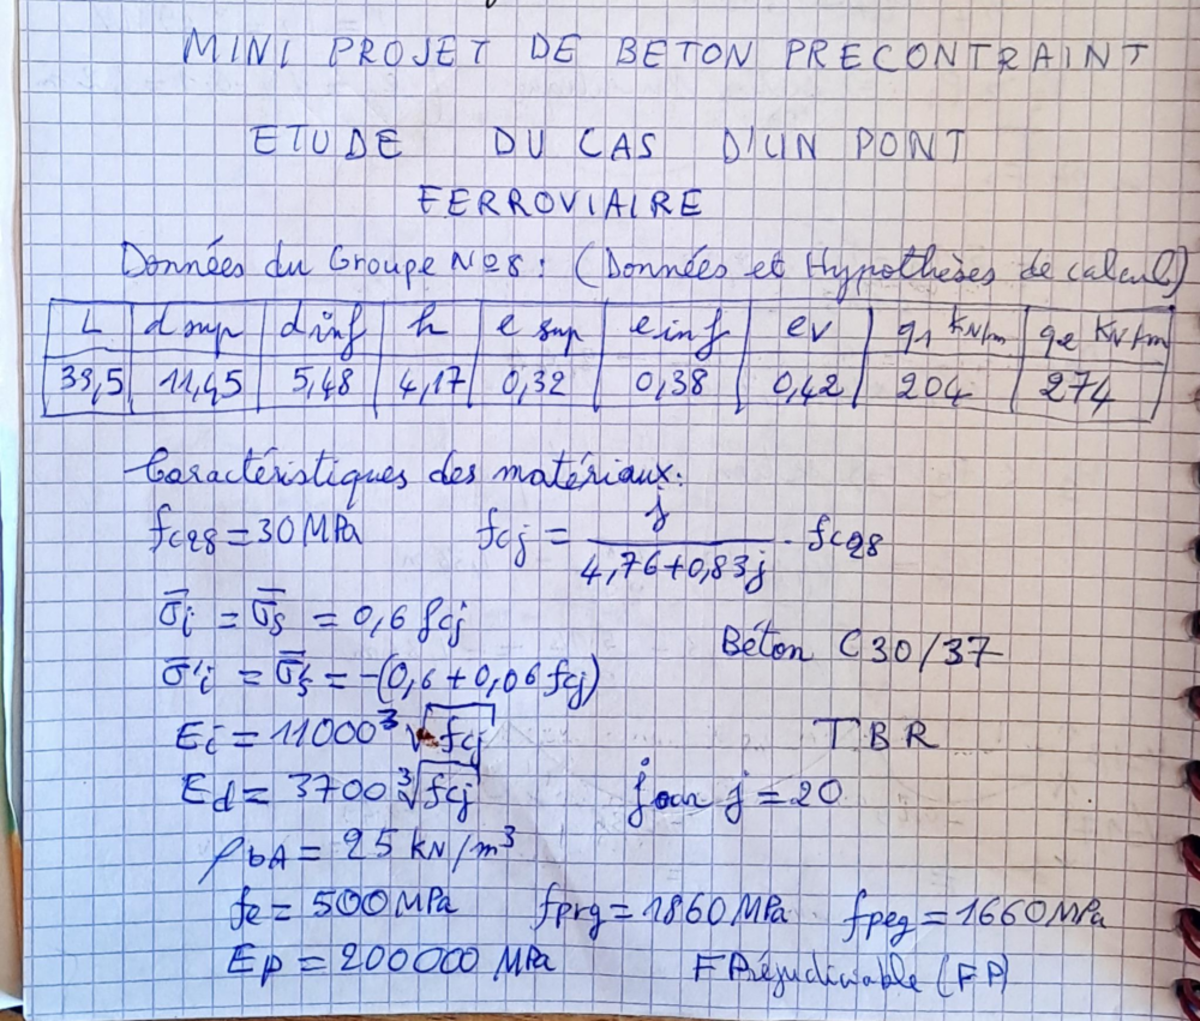 MINI PROJET DE BETON PRECONTRAINT
ETUDE DU CAS D'UN PONT
FERROVIAIRE
Données du Groupe N°8 : (Données et Hypothèses de calcul)
L | d sup | d inf | h | e sup | e inf | ev | q1 KN/m | q2 KN/m
39,5 | 11,45 | 5,48 | 4,17 | 0,32 | 0,38 | 0,42 | 204 | 274
Caractéristiques des matériaux:
fc28 = 30 MPa fcj = j / (4,76+0,83j) · fc28
σ̄i = σ̄s = 0,6 fcj
Béton C30/37
σ̄'i = σ̄'s = -(0,6 + 0,06 fcj)
Ei = 11000 ³√fcj TBR
Ed = 3700 ³√fcj jour j = 20
ρbA = 25 kN/m³
fe = 500 MPa fprg = 1860 MPa fpeg = 1660 MPa
Ep = 200000 MPa F Préjudiciable (FP)